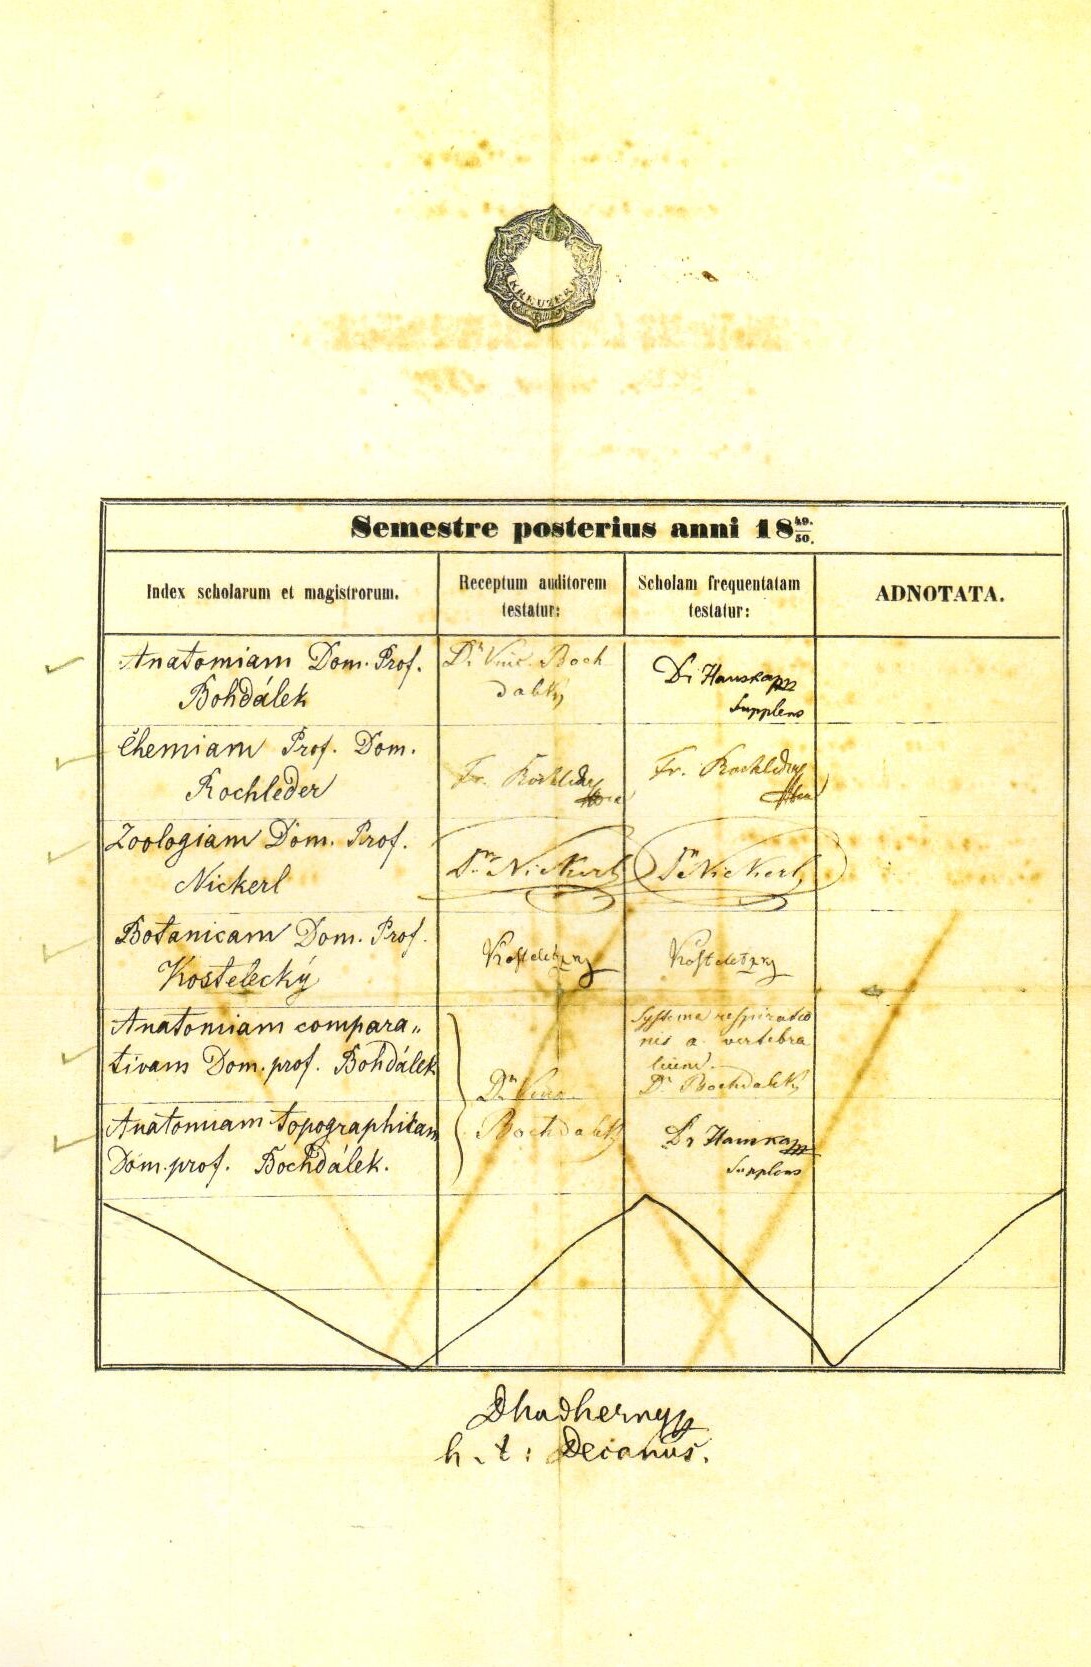 6
KREUZER
Semestre posterius anni 18 49. 50.
Index scholarum et magistrorum.
Receptum auditorem
testatur:
Scholam frequentatam
testatur:
ADNOTATA.
Anatomiam Dom. Prof.
Bohdálek
Dr Vinc. Boch
dalek
Dr Hauska
Supplens
Chemiam Prof. Dom.
Rochleder
Fr. Rochleder
Fr. Rochleder
Zoologiam Dom. Prof.
Nickerl
Dr Nickerl
Dr Nickerl
Botanicam Dom. Prof.
Kostelecký
Kosteletzky
Kosteletzky
Anatomiam compara„
tivam Dom. prof. Bohdálek
Systema respiratio
nis a vertebra
Dr Bochdalek
Anatomiam topographicam
Dom. prof. Bochdálek.
Dr Vinc.
Bochdalek
Dr Hauska
Supplens
h. t: Decanus.